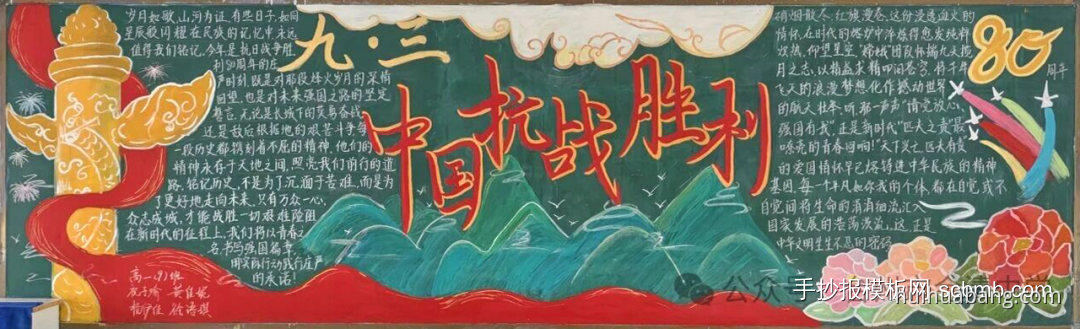 岁月如歌,山河为证,有些日子,如同
星辰般闪耀在民族的记忆中永远
值得我们铭记,今年是抗日战争胜
利80周年的庄
严时刻,既是对那段烽火岁月的深情
回望,也是对未来强国之路的坚定
誓言。无论是长城下的英勇奋战,
还是敌后根据地的艰苦斗争每
一段历史都镌刻着不屈的精神,他们的
精神永存于天地之间,照亮我们前行的道
路。铭记历史,不是为了沉湎于苦难,而是为
了更好地走向未来。只有万众一心、
众志成城,才能战胜一切艰难险阻
在新时代的征程上,我们将以青春之
名,书写强国篇章,
用实际行动践行庄严
的承诺!
高一(9)班
九·三
中国抗战胜利
硝烟散尽,红旗漫卷,这份浸透血火的
情怀,在时代的熔炉中淬炼得愈发纯粹
炽热。仰望星空,"嫦娥"团队怀揣九天揽
月之志,以精益求精叩问苍穹,将千年
飞天的浪漫梦想化作撼动世界
的航天壮举,听,那一声声"请党放心,
强国有我",正是新时代"匹大之责"最
嘹亮的青春回响!"天下兴亡,匹夫有责"
的爱国情怀早已熔铸进中华民族的精神
基因,每一个平凡如你我的个体,都在自觉或不
自觉间将生命的涓涓细流,汇入
国家发展的浩荡洪流,这,正是
中华文明生生不息的密码
80
周年
公众号
手抄报模板网 scbmb.com
huihuabang.com